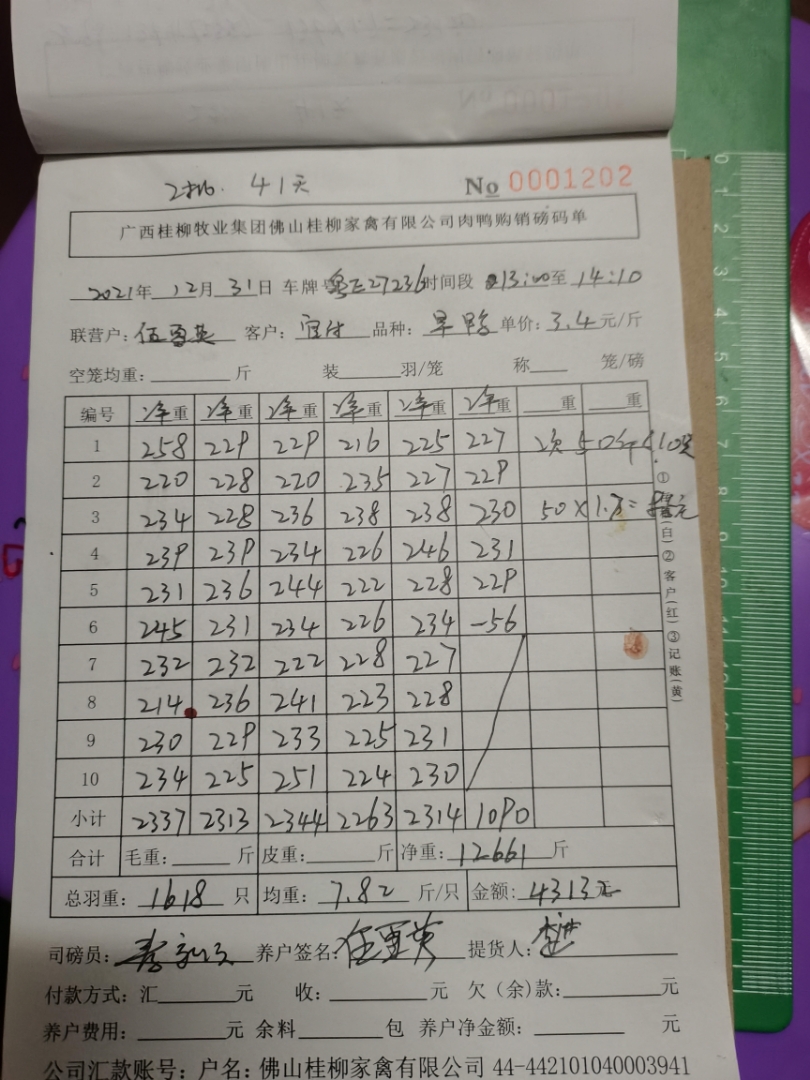 41天 No 0001202
广西桂柳牧业集团佛山桂柳家禽有限公司肉鸭购销磅码单
2021年 12月 31日 车牌号 粤E27236 时间段 13:00至 14:10
联营户: 客户: 品种: 单价: 3.4元/斤
空笼均重: 斤 装 羽/笼 称 笼/磅
编号 净重 净重 净重 净重 净重 净重 重 重
1 258 229 229 216 225 227 2次 50斤
2 220 228 220 235 227 229
3 234 228 236 238 238 230 50×1.7=
4 239 239 234 226 246 231
5 231 236 244 222 228 229
6 245 231 234 226 234 -56
7 232 232 222 228 227
8 214 236 241 223 228
9 230 229 233 225 231
10 234 225 251 224 230
小计 2337 2313 2344 2263 2314 1090
合计 毛重: 斤 皮重: 斤 净重: 12661 斤
总羽重: 1618 只 均重: 7.82 斤/只 金额: 4313元
司磅员: 养户签名: 提货人:
付款方式: 汇 元 收: 元 欠(余)款: 元
养户费用: 元 余料 包 养户净金额: 元
公司汇款账号: 户名: 佛山桂柳家禽有限公司 44-442101040003941
①(白)②客户(红)③记账(黄)
0 1 2 3 4 5 6 7